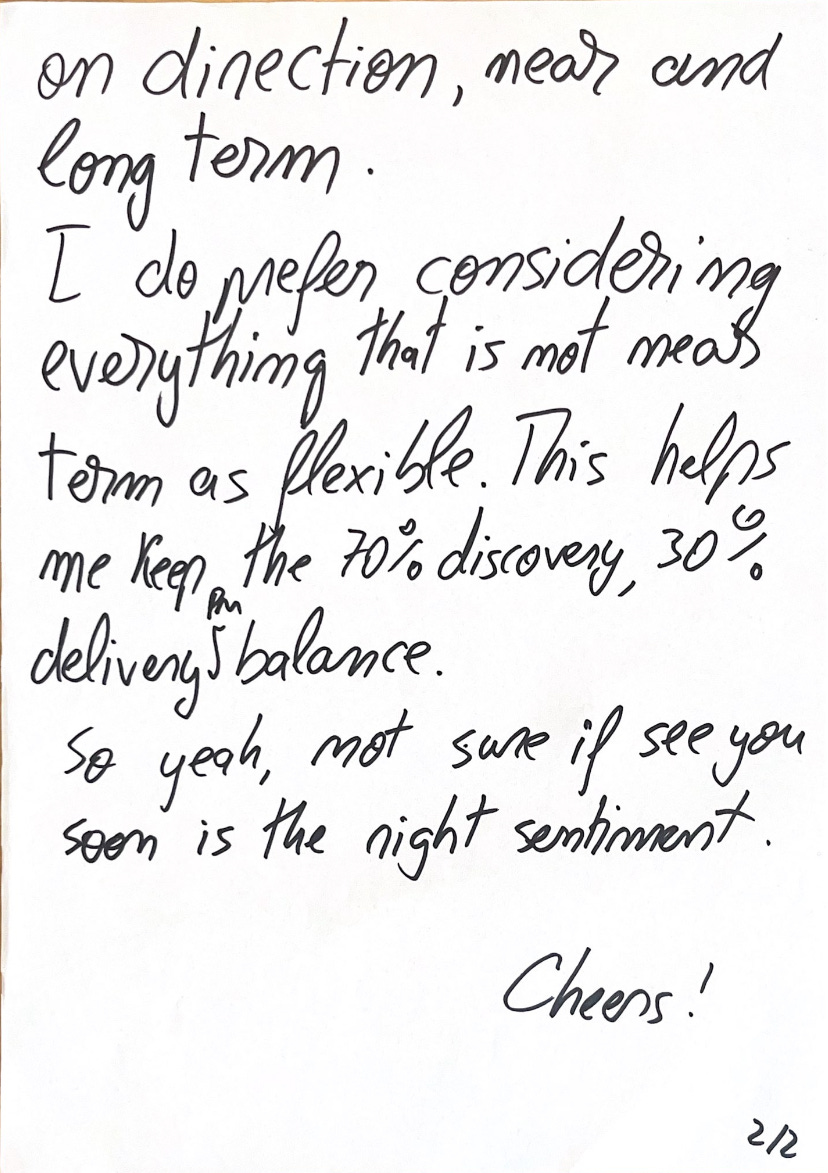 on direction, near and
long term.
I do prefer considering
everything that is not near
term as flexible. This helps
me keep the 70% discovery, 30%
PM
delivery balance.
So yeah, not sure if see you
soon is the right sentiment.
Cheers!
2/2